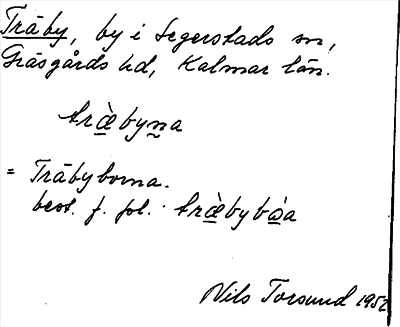 Träby, by i Segerstads sn,
Gräsgårds hd, Kalmar län.
træ̀byna
= Träbyborna.
best. f. pl. træ̀bybòa
Nils Torsund 1952